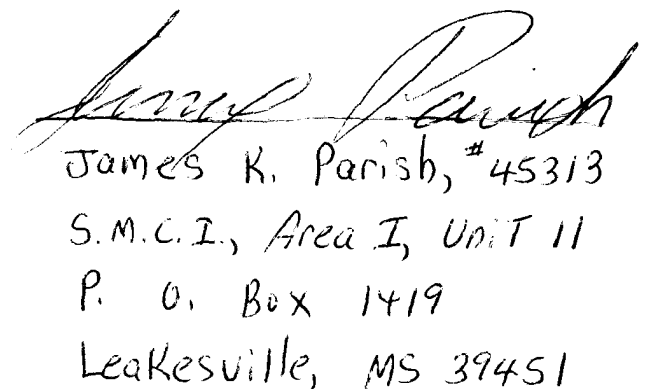 James Parish
James K. Parish, #45313
S.M.C.I., Area I, UniT 11
P. O. Box 1419
Leakesville, MS 39451